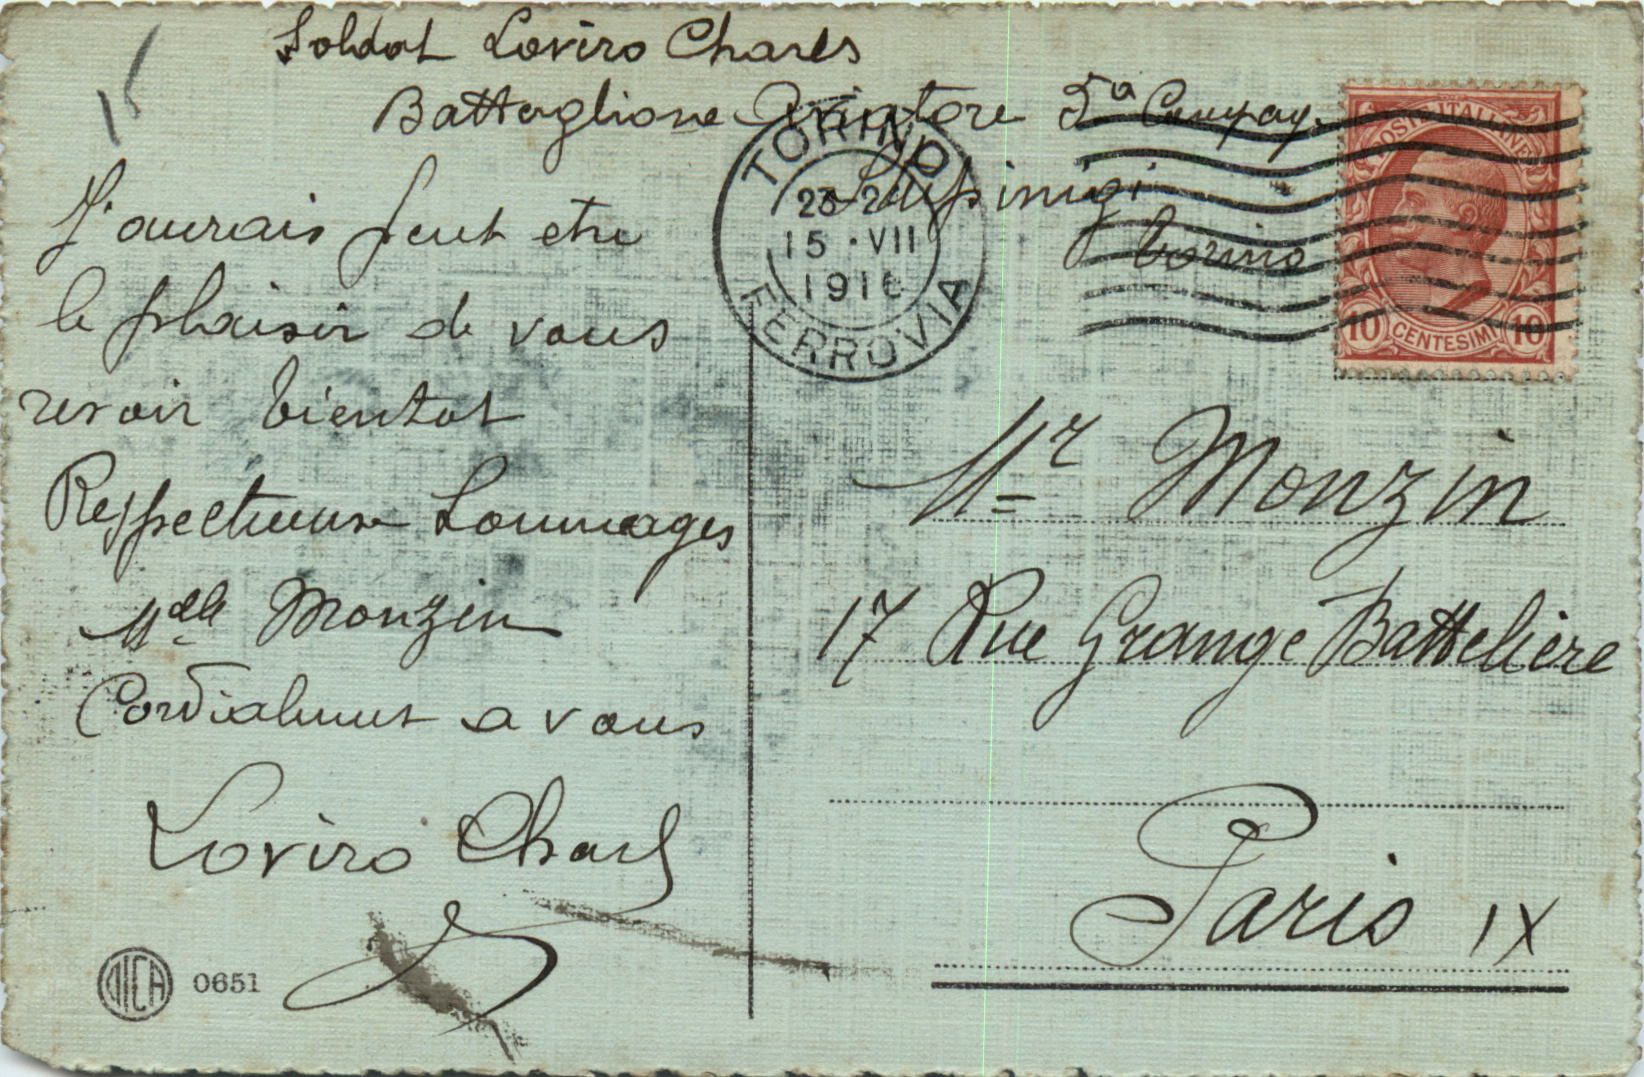 Soldat Loviro Charls
Battaglione Aviatore 5a Compag.
Torino
J'aurais peut etre
le plaisir de vous
revoir bientot
Respectueuse hommages
Mdle Monzin
Cordialment a vous
Loviro Charls
TORINO
15 · VII
191
FERROVIA
POSTE ITALIANE
10 CENTESIMI 10
Mr Monzin
17 Rue Grange Battelière
Paris IX
0651